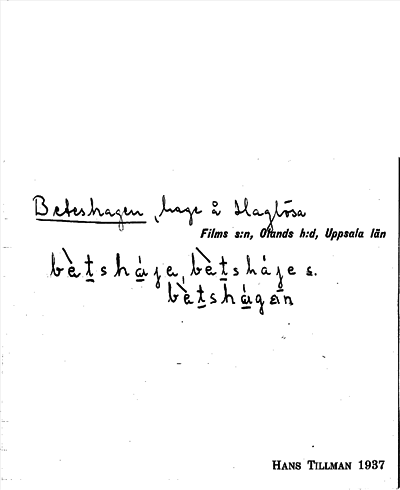 Beteshagen, hage å Haglösa
Films s:n, Olands h:d, Uppsala län
bètsháje, bètsháje s.
bètshágen
HANS TILLMAN 1937